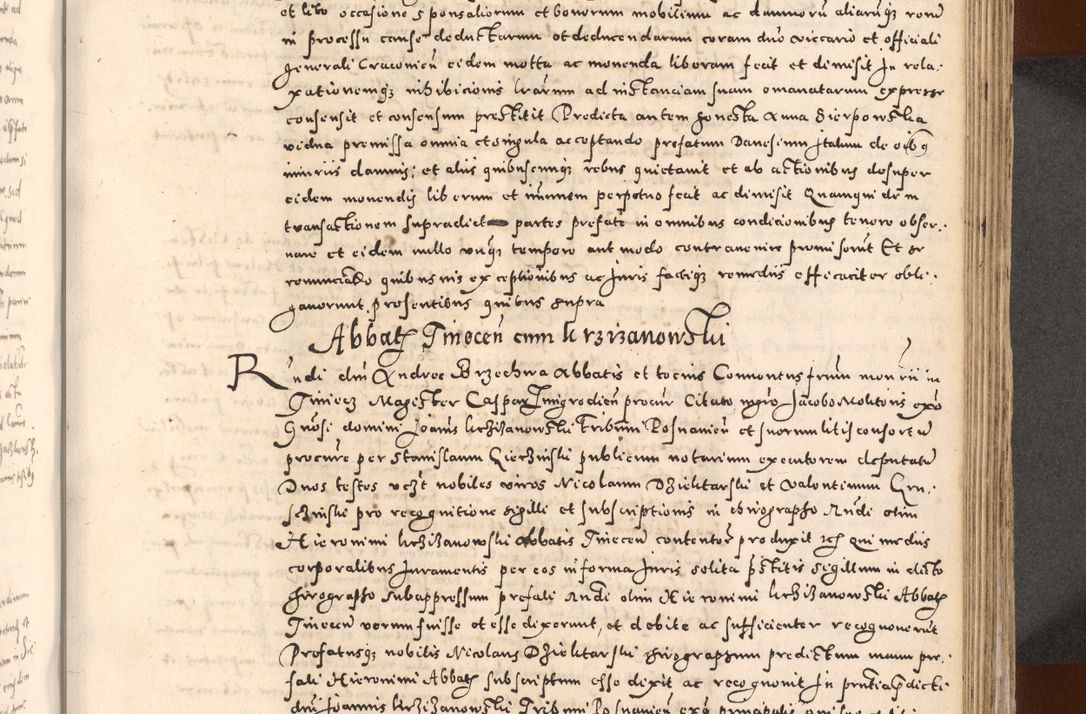 et lite occasione sponsaliorum et bonorum mobilium ac damnorũ aliarũqz rerũ
in processu cause deductarum et deducendarum coram dno vicario et officiali
generali Cracovien eidem motta ac movenda liberam fecit et dimisit In rela,
xationemqz inhibicionis lrarum ad instanciam suam emanatarum expresse
consensit et consensum prestitit Predicta autem honesta Anna Sierpowska
vidua premissa omnia et singula acceptando prefatum Italum de oibq
iniuriis damnis, et aliis quibuscumqz rebus quietavit et ab actionibus desuper
eidem movendis liberum et immunem perpetuo fecit ac dimisit Quamquidem
transactionem supradict partes prefate in omnibus condicionibus tenere obser,
vare et eidem nullo unqz tempore aut modo contravenire promiserunt Et se
renunciando quibusvis exceptionibus ac Juris factiqz remediis efficaciter obli,
gaverunt, presentibus quibus supra
Abbatz Tinecen cum Krzizanowski
Rndi dni Andree Brzechwa Abbatis et tocius Conventus frum monrii in
Tiniecz Magister Caspar procur Citato mgro Jacobo Molitoris exo
Gnosi domini Joanis Krzizanowski Tribuni Posnanien et suorum litis consortũ
procure per Stanislaum publicum notarium executorem deputatũ
Duos testes vczt nobiles viros Nicolaum Dzielitarski et Valentinum Gru,
szinski pro recognitione sigilli et subscriptionis in chirographo Rndi olim
Hieronimi Krzizanowski Abbatis Tinecen contentor produxit Qui mediis
corporalibus Juramentis per eos in forma Juris solita pstitis sigillum in dicto
chirographo subappressum prefati Rndi olim Hieronimi Krzizanowski Abbatz
Tinecen verum fuisse et esse dixerunt, et debite ac sufficienter recognoverũt
Prefatusqz nobilis Nicolaus Dzielitarski chirographum predictum manu pre,
fati Hieronimi Abbatz subscriptum esse dixit ac recognovit In pntia pdicti
dni Joannis Krzizanowski Tribuni Posnanien exo principalis